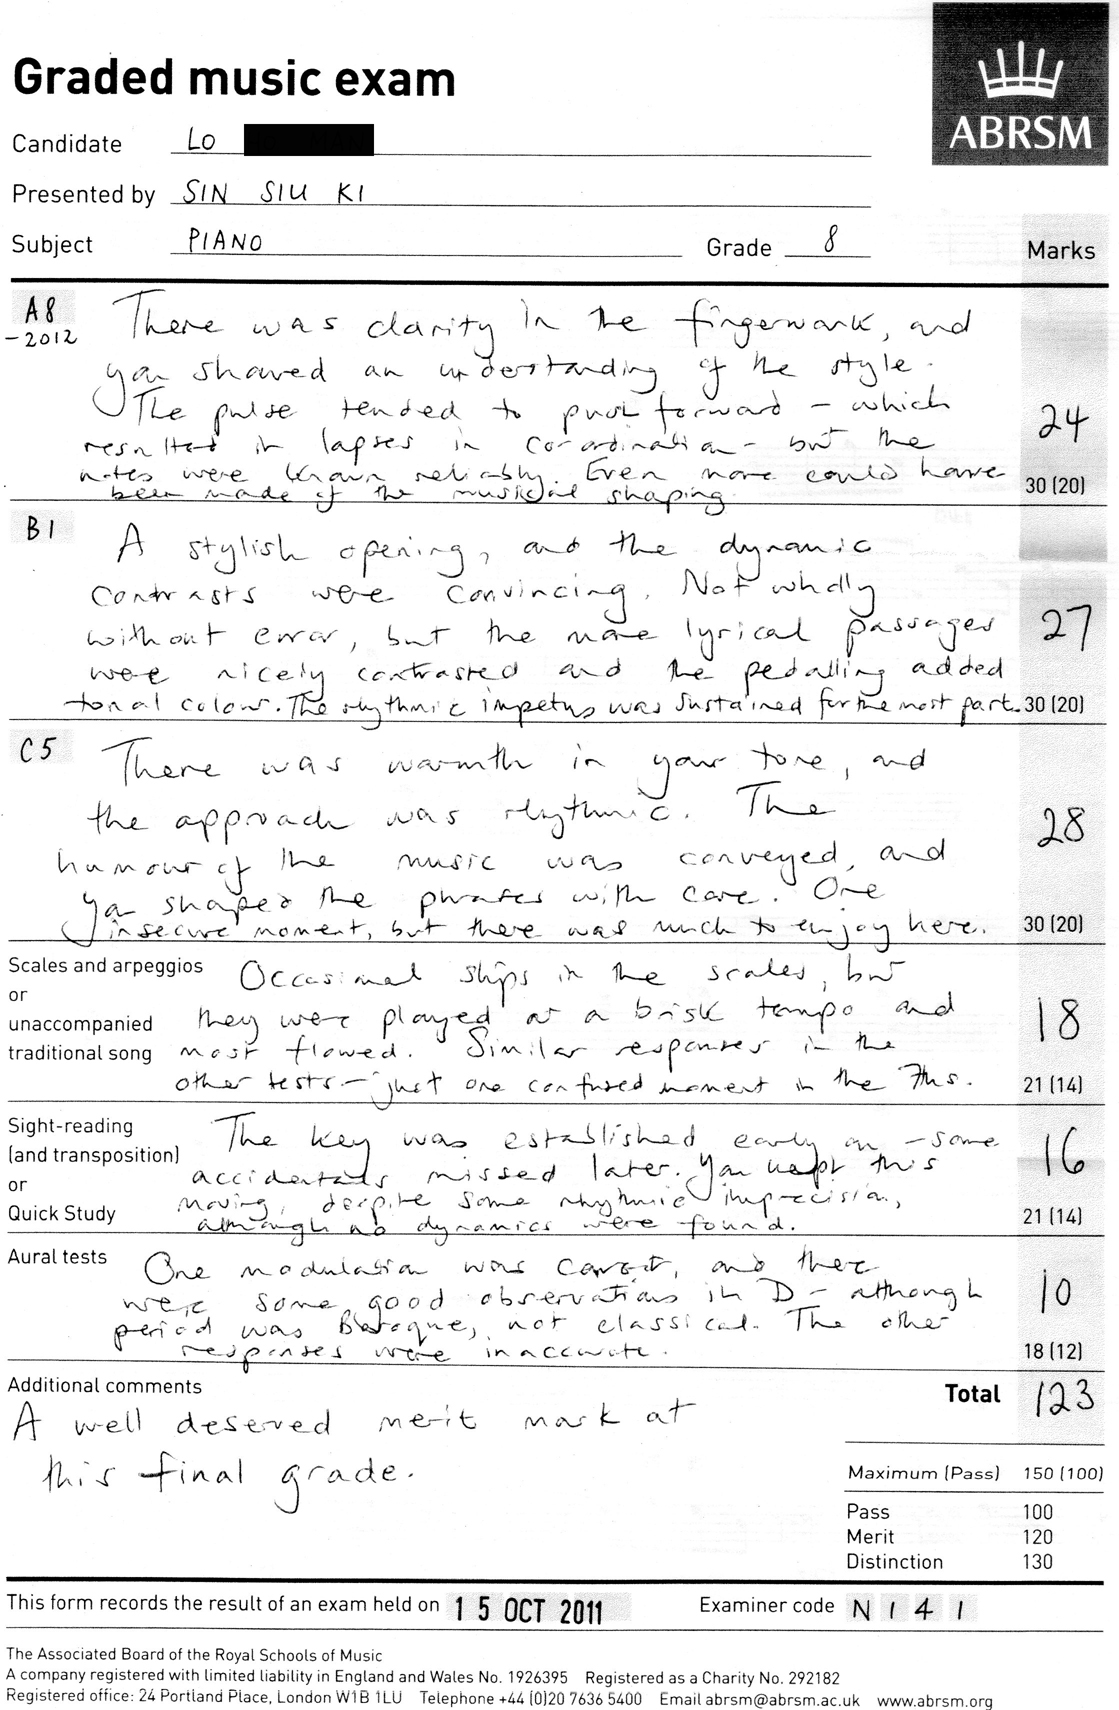 Graded music exam
ABRSM
Candidate LO
Presented by SIN SIU KI
Subject PIANO Grade 8 Marks
A8 -2012
There was clarity in the fingerwork, and
you showed an understanding of the style.
The pulse tended to push forward – which
resulted in lapses in co-ordination – but the
notes were known reliably. Even more could have
been made of the musical shaping.
24
30 (20)
B1
A stylish opening, and the dynamic
contrasts were convincing. Not wholly
without error, but the more lyrical passages
were nicely contrasted and the pedalling added
tonal colour. The rhythmic impetus was sustained for the most part.
27
30 (20)
C5
There was warmth in your tone, and
the approach was rhythmic. The
humour of the music was conveyed, and
you shaped the phrases with care. One
insecure moment, but there was much to enjoy here.
28
30 (20)
Scales and arpeggios
or
unaccompanied
traditional song
Occasional slips in the scales, but
they were played at a brisk tempo and
most flowed. Similar responses in the
other tests – just one confused moment in the 7ths.
18
21 (14)
Sight-reading
(and transposition)
or
Quick Study
The key was established early on – some
accidentals missed later. You kept this
moving, despite some rhythmic imprecision,
although no dynamics were found.
16
21 (14)
Aural tests
One modulation was correct, and there
were some good observations in D – although
period was Baroque, not classical. The other
responses were inaccurate.
10
18 (12)
Additional comments
A well deserved merit mark at
this final grade.
Total 123
Maximum (Pass) 150 (100)
Pass 100
Merit 120
Distinction 130
This form records the result of an exam held on 15 OCT 2011 Examiner code N141
The Associated Board of the Royal Schools of Music
A company registered with limited liability in England and Wales No. 1926395 Registered as a Charity No. 292182
Registered office: 24 Portland Place, London W1B 1LU Telephone +44 (0)20 7636 5400 Email abrsm@abrsm.ac.uk www.abrsm.org